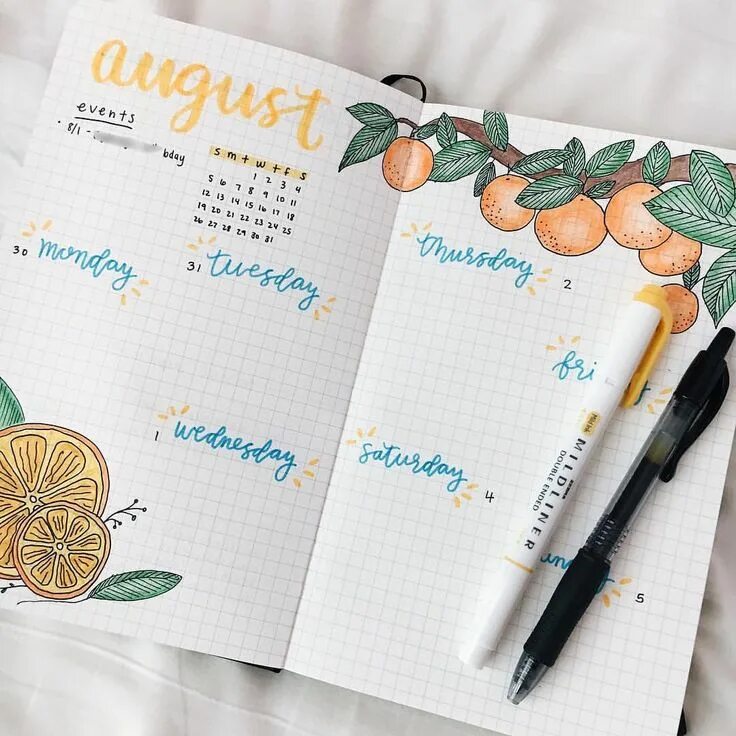 august
events
- 8/1 - bday
S m t w t f s
1 2 3 4
5 6 7 8 9 10 11
12 13 14 15 16 17 18
19 20 21 22 23 24 25
26 27 28 29 30 31
30 monday
31 tuesday
1 wednesday
thursday 2
fri
saturday 4
5
Mild
MILDLINER
DOUBLE ENDED